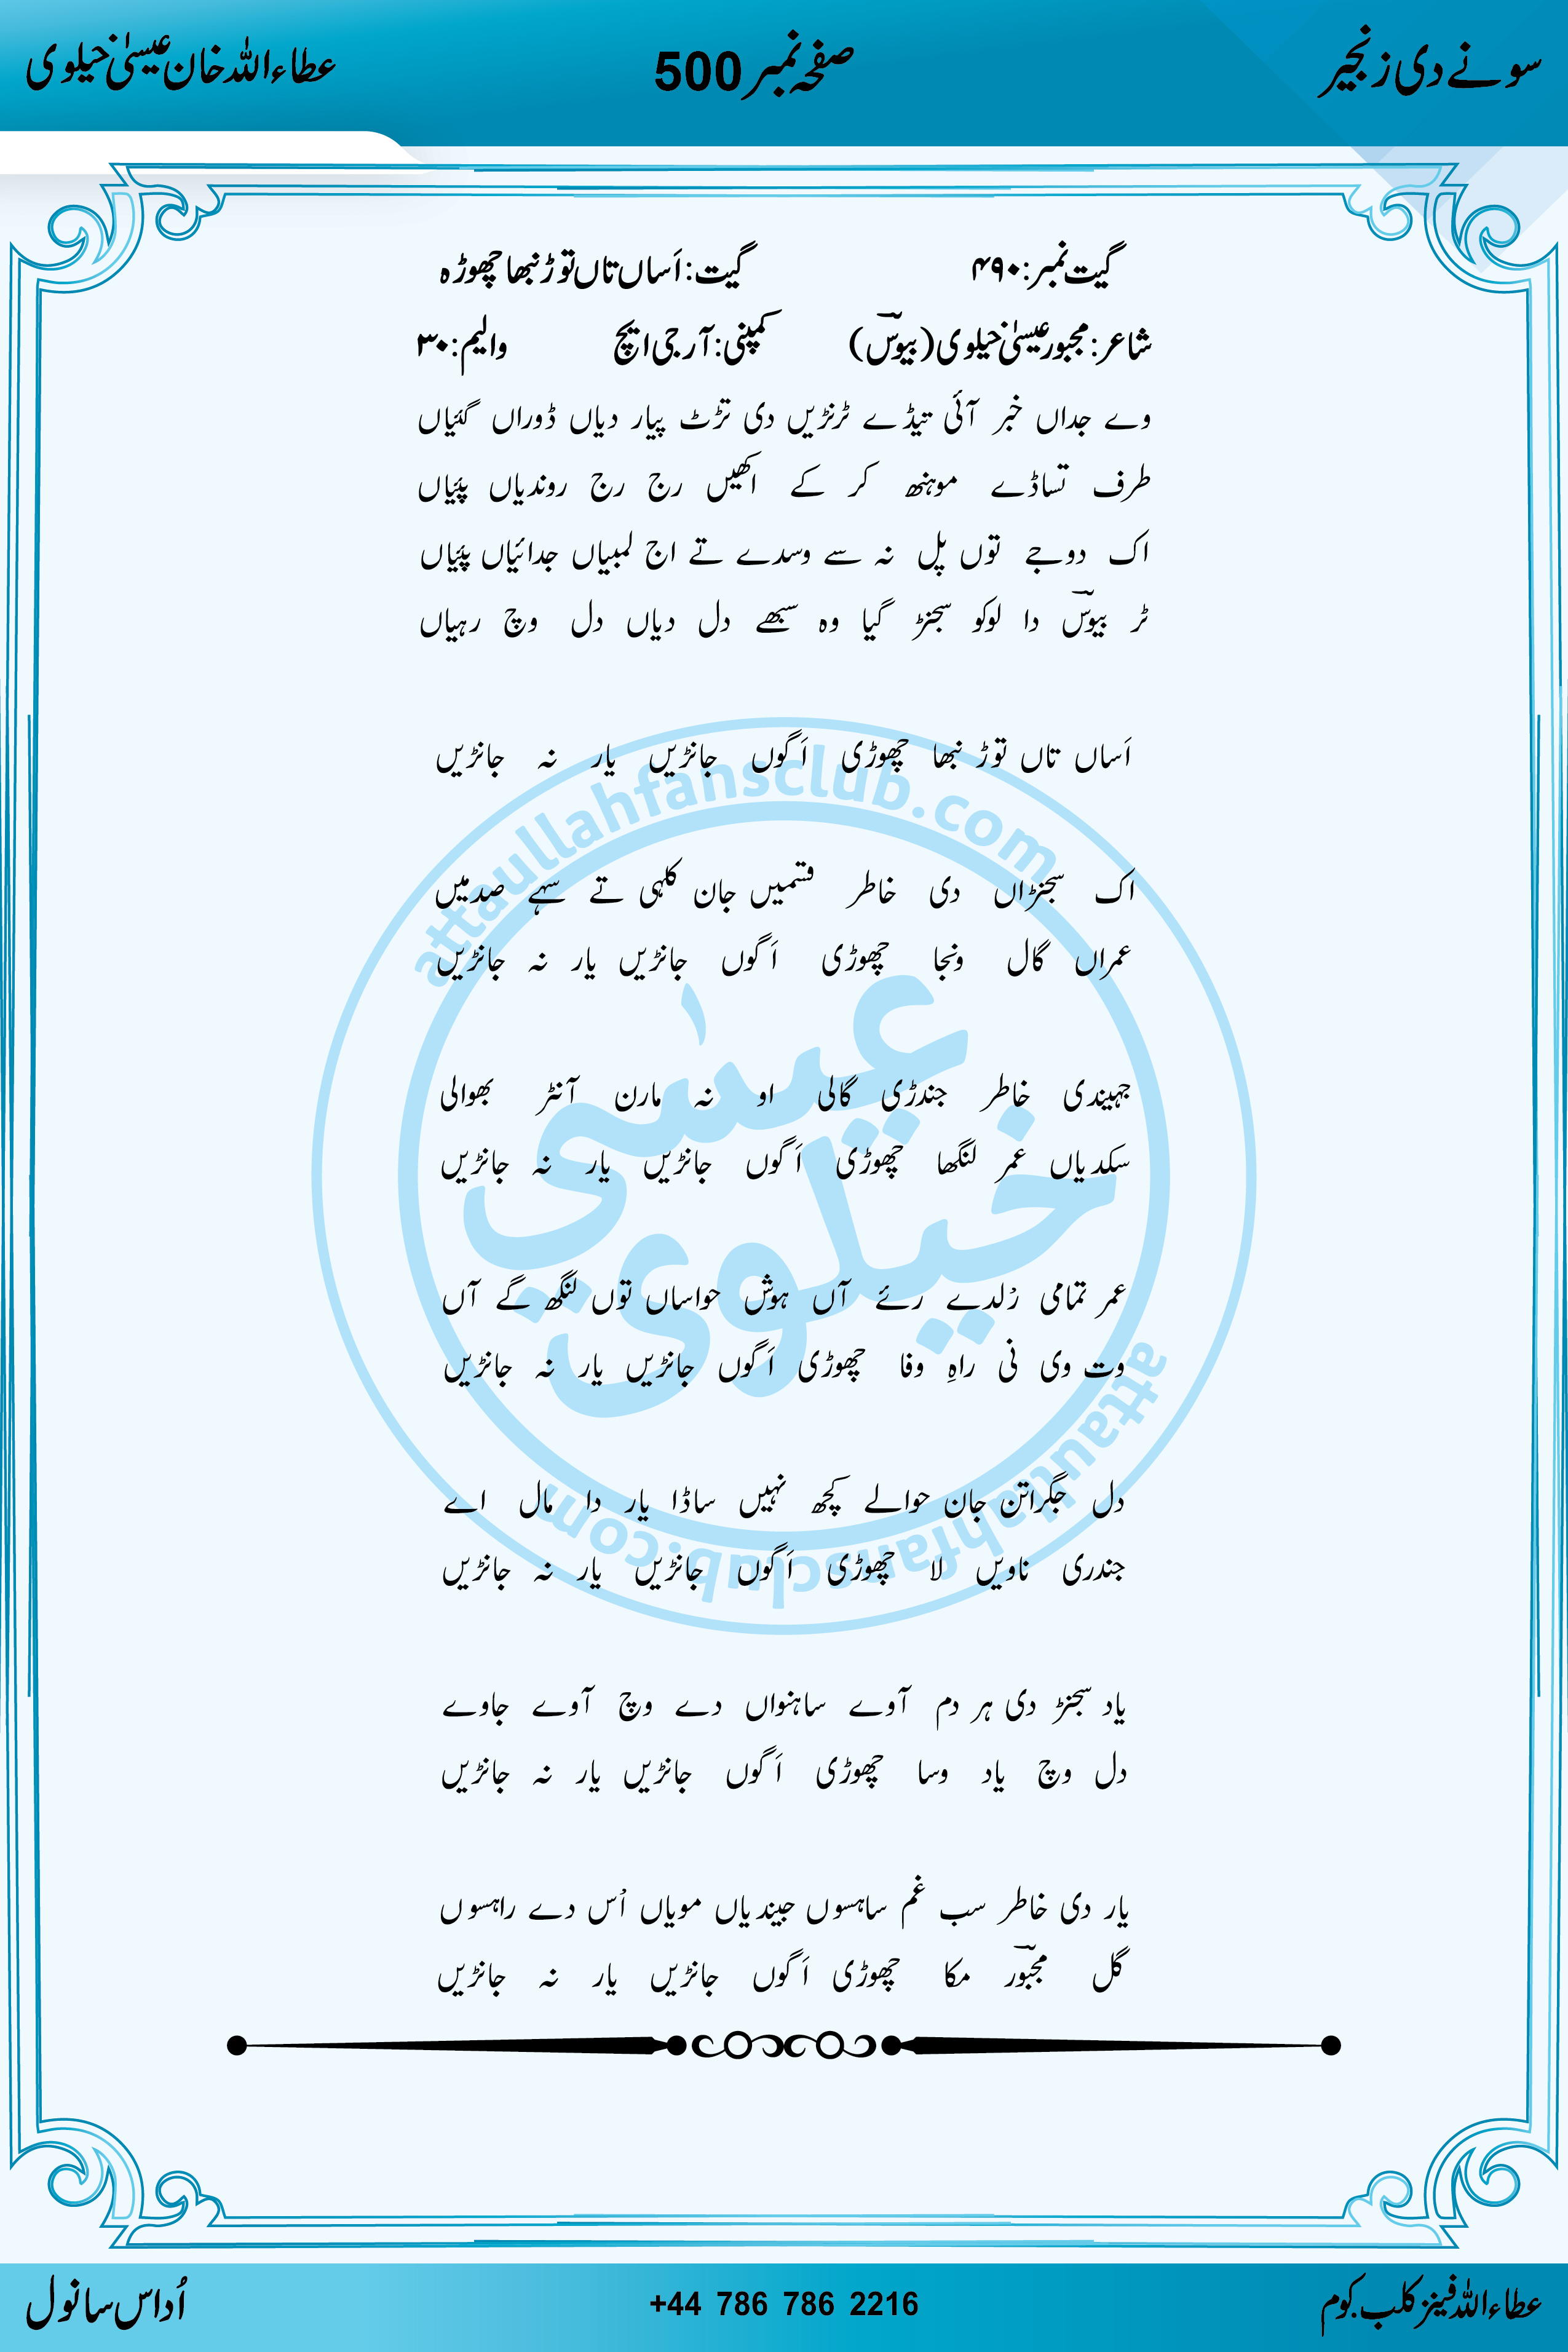 سونے دی زنجیر
صفحہ نمبر 500
عطاءاللہ خان عیسیٰ خیلوی
گیت نمبر: ۴۹۰ گیت: اَساں تاں توڑ نبھا چھوڑہ
شاعر: مجبور عیسیٰ خیلوی (بیوسؔ) کمپنی: آر جی ایچ والیم: ۳۰
وے جداں خبر آئی تیڈے ٹرنڑیں دی تڑٹ پیار دیاں ڈوراں گئیاں
طرف تساڈے موہنھ کر کے اکھیں رج رج روندیاں پئیاں
اک دوجے توں پل نہ سے وسدے تے اج لمبیاں جدائیاں پئیاں
ٹر بیوسؔ دا لوکو سجنڑ گیا وہ سبھے دل دیاں دل وچ رہیاں
اَساں تاں توڑ نبھا چھوڑی اَگوں جانڑیں یار نہ جانڑیں
attaullahfansclub.com
اک سجنڑاں دی خاطر قسمیں جان کلہی تے سہے صدمیں
عمراں گال ونجا چھوڑی اَگوں جانڑیں یار نہ جانڑیں
عیسٰی
خیلوی
جہیندی خاطر جندڑی گالی او نہ مارن آنٹر بھوالی
سکدیاں عمر لنگھا چھوڑی اَگوں جانڑیں یار نہ جانڑیں
عمر تمامی رُلدے رئے آں ہوش حواساں توں لنگھ گے آں
وت وی نی راہِ وفا چھوڑی اَگوں جانڑیں یار نہ جانڑیں
دل جگراتن جان حوالے کچھ نہیں ساڈا یار دا مال اے
جندری ناویں لا چھوڑی اَگوں جانڑیں یار نہ جانڑیں
attaullahfansclub.com
یاد سجنڑ دی ہر دم آوے ساہنواں دے وچ آوے جاوے
دل وچ یاد وسا چھوڑی اَگوں جانڑیں یار نہ جانڑیں
یار دی خاطر سب غم ساہسوں جیندیاں مویاں اُس دے راہسوں
گل مجبورؔ مکا چھوڑی اَگوں جانڑیں یار نہ جانڑیں
عطاءاللہ فینز کلب.کوم
+44 786 786 2216
اُداس سانول